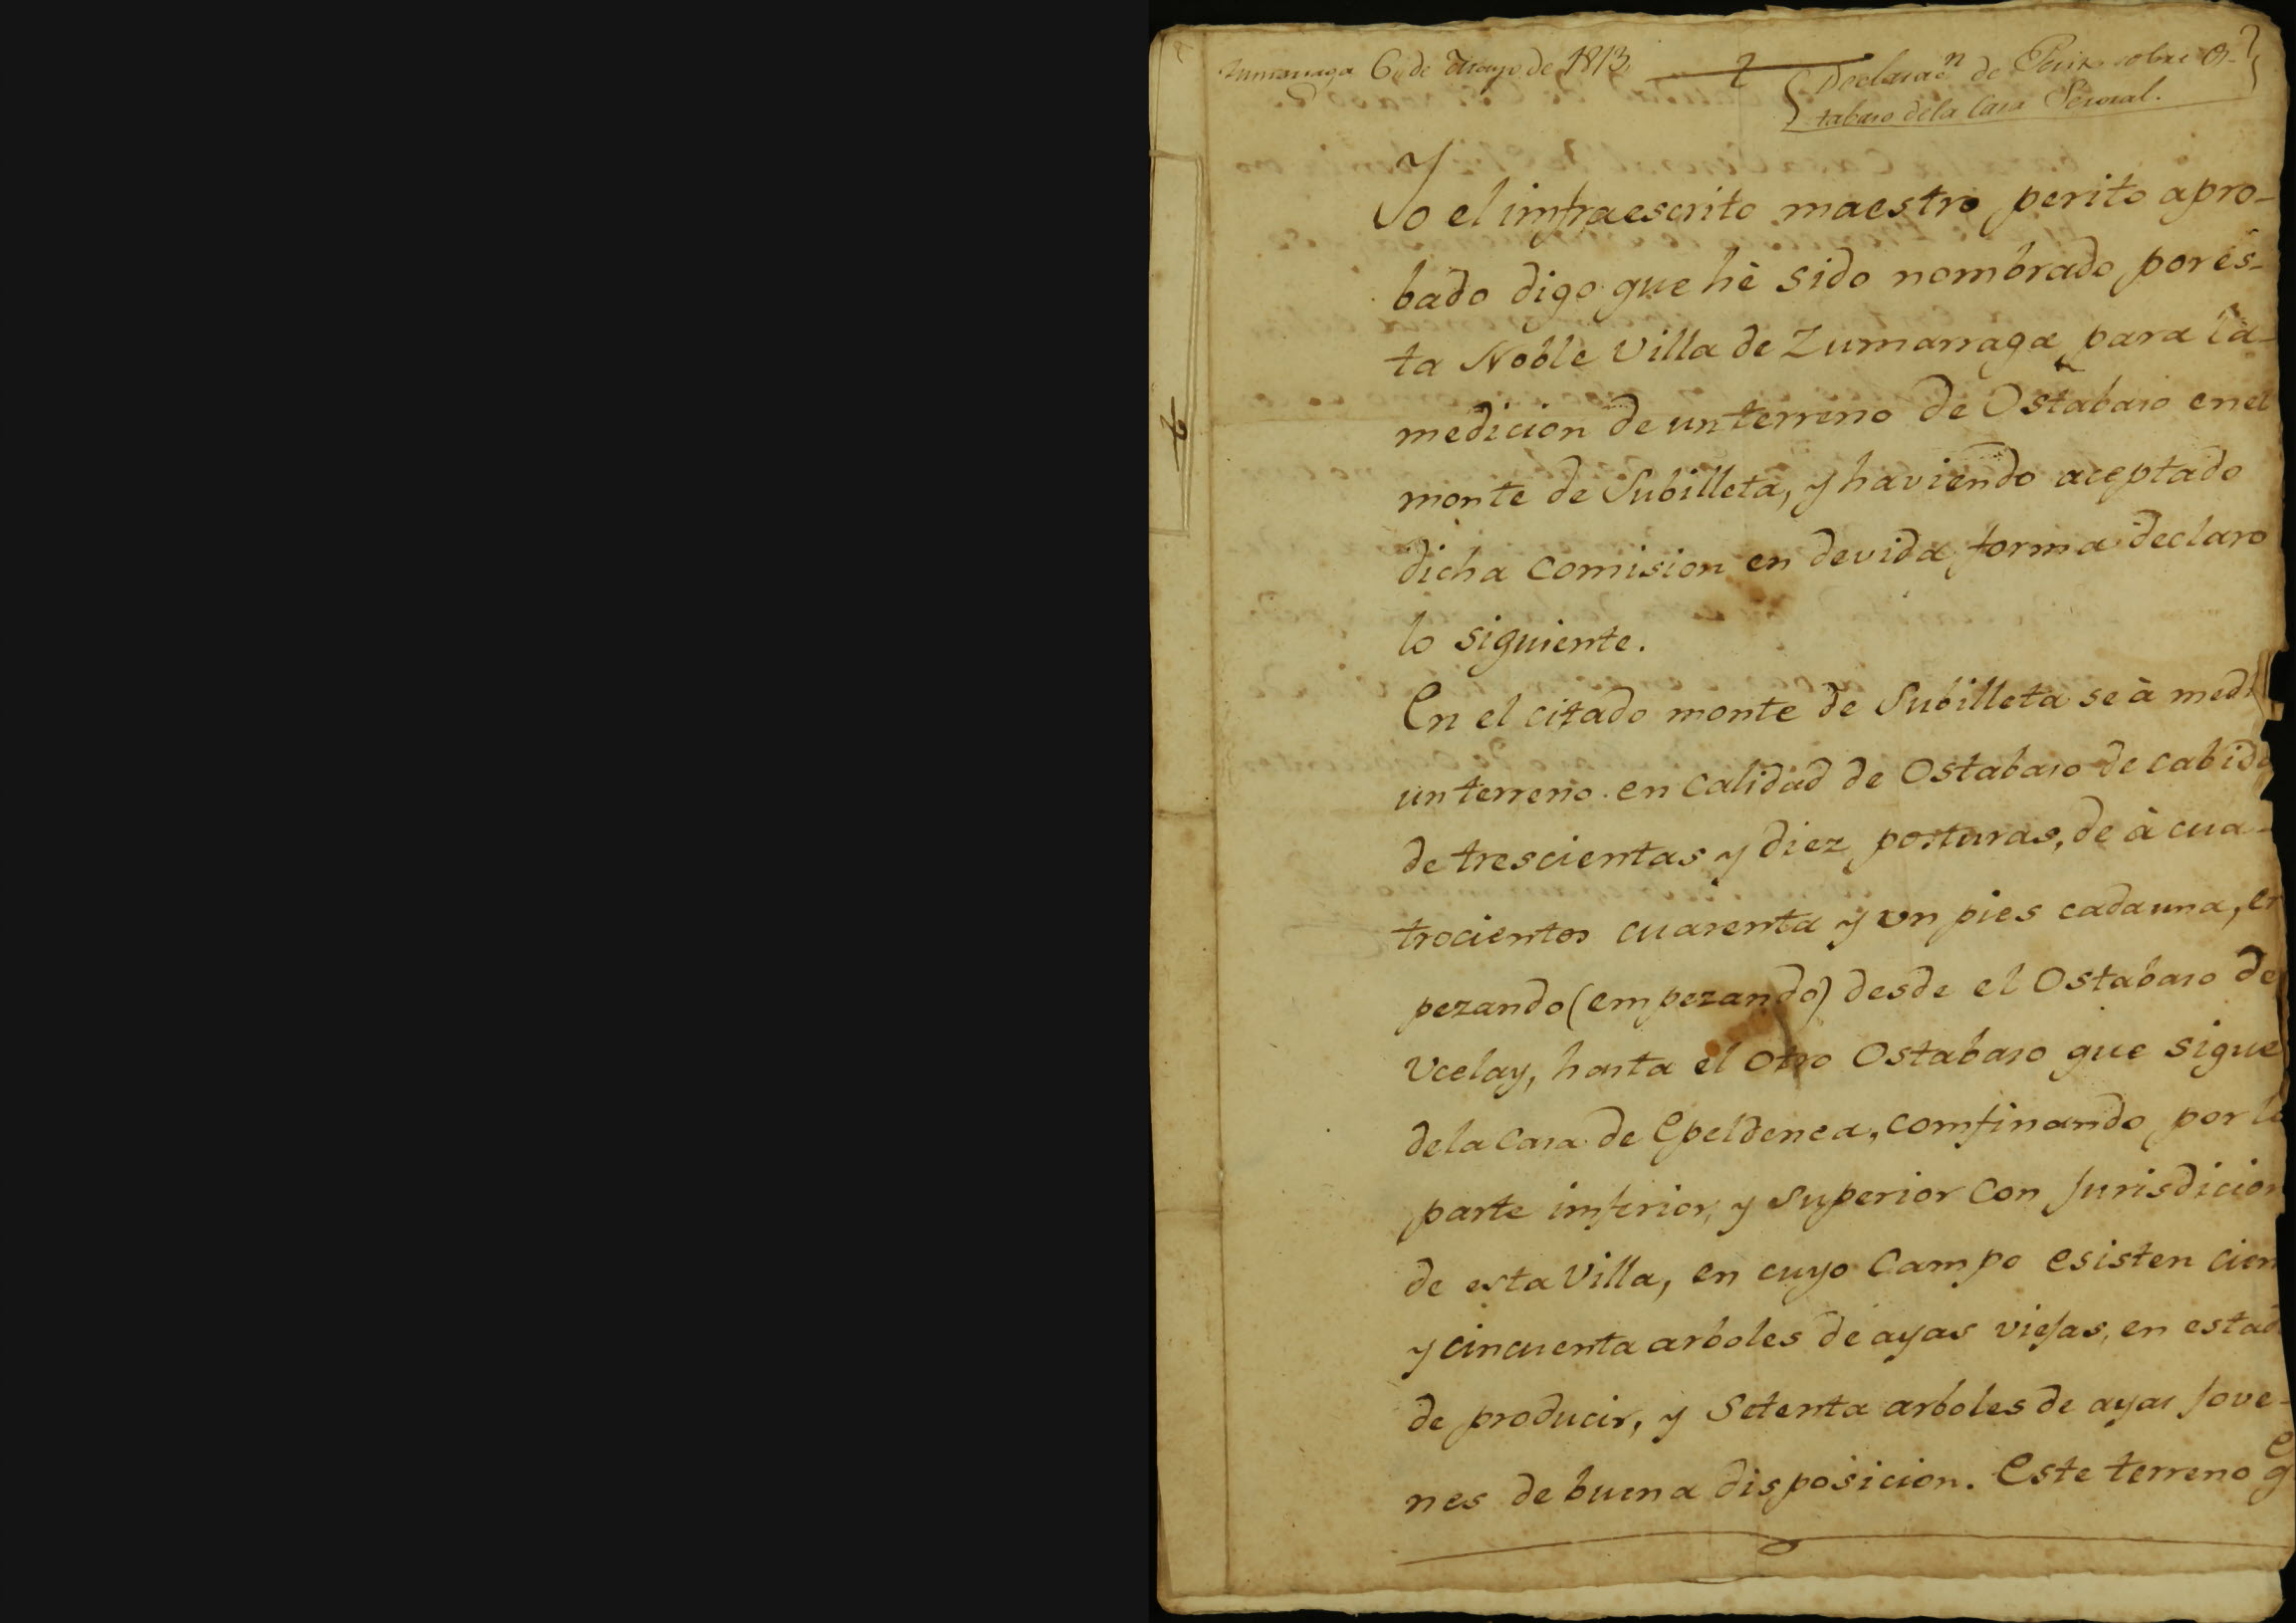 Zumarraga 6,, de Mayo de 1813.
Declarac.n de Perito sobre Os-
tabaso dela Casa Semoral.
Yo el imfraescrito maestro perito apro-
bado digo que hè sido nombrado por es-
ta Noble Villa de Zumarraga para la
medicion de un terreno de Ostabaso en el
monte de Subilleta, y haviendo aceptado
dicha Comision en devida forma declaro
lo siguiente.
En el citado monte de Subilleta se à medi
un terreno en calidad de Ostabaso de cabida
de trescientas y diez posturas, de à cua-
trocientos cuarenta y un pies cada una, em
pezando (empezando) desde el Ostabaso de
Vcelay, hasta el otro Ostabaso que sigue
dela Casa de Epeldenea, comfinando por la
parte imferior, y superior con Jurisdicion
de esta Villa, en cuyo Campo esisten cien
y cincuenta arboles de ayas viejas, en estado
de producir, y Setenta arboles de ayas Jove-
nes de buena disposicion. Este terreno